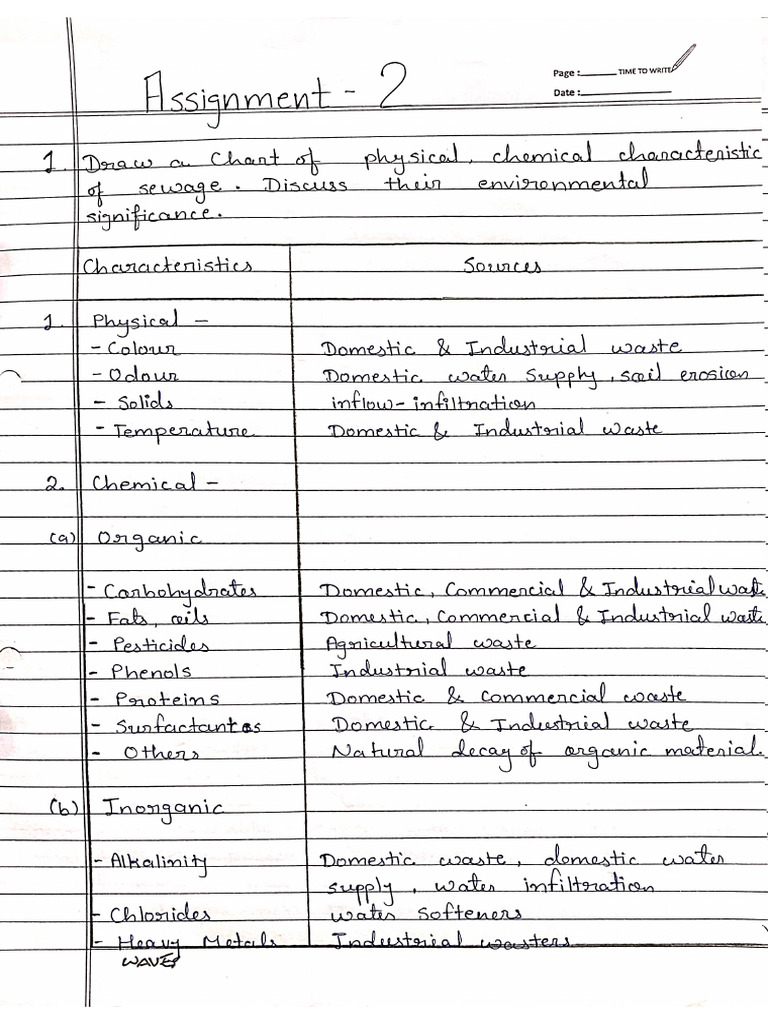 Page : TIME TO WRITE
Date :
Assignment - 2
1. Draw a Chart of physical, chemical characteristic
of sewage. Discuss their environmental
significance.
Characteristics Sources
1. Physical -
- Colour Domestic & Industrial waste
- Odour Domestic water supply, soil erosion
- Solids inflow-infiltration
- Temperature Domestic & Industrial waste
2. Chemical -
(a) Organic
- Carbohydrates Domestic, Commercial & Industrial waste
- Fats, oils Domestic, Commercial & Industrial waste
- Pesticides Agricultural waste
- Phenols Industrial waste
- Proteins Domestic & Commercial waste
- Surfactants Domestic & Industrial waste
- Others Natural decay of organic material.
(b) Inorganic
- Alkalinity Domestic waste, domestic water
supply, water infiltration
- Chlorides water softeners
- Heavy Metals Industrial wasters
WAVES